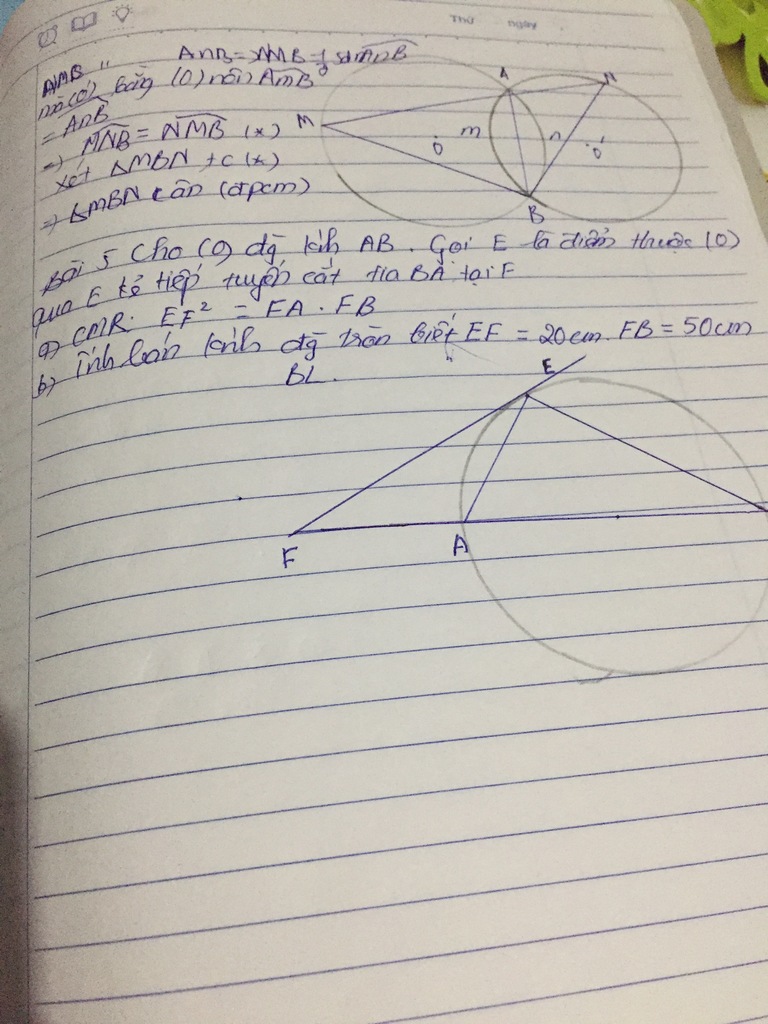 Thứ ngày
AMB " AnB = AMB = sđ AnB
mà (O') bằng (O) nên AmB
= AnB
=> MNB = NMB (*)
xét ΔMBN + c (*)
=> ΔMBN cân (đpcm)
A
N
M
O
m
n
O'
B
Bài 5 Cho (O) đg kính AB. Gọi E là điểm thuộc (O)
qua E kẻ tiếp tuyến cắt tia BA tại F
a) CMR: EF² = FA . FB
b) Tính bán kính đg tròn biết EF = 20cm. FB = 50cm
BL.
E
F
A